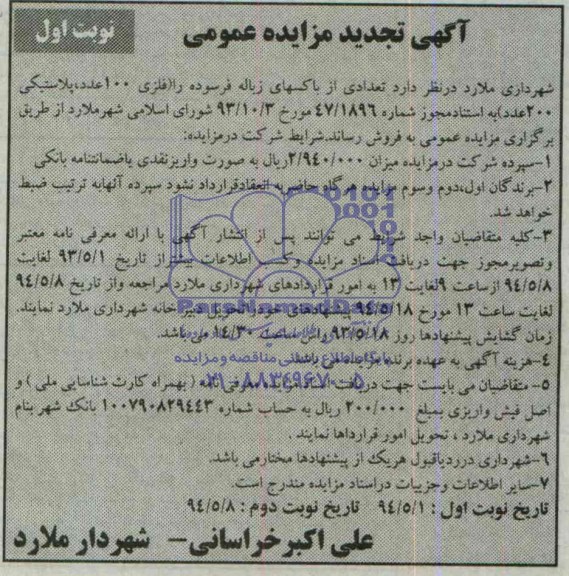 آگهی تجدید مزایده عمومی
نوبت اول
شهرداری ملارد درنظر دارد تعدادی از باکسهای زباله فرسوده را(فلزی ۱۰۰عدد،پلاستیکی
۲۰۰عدد)به استنادمجوز شماره ٤٧/١٨٩٦ مورخ ٩٣/١٠/٣ شورای اسلامی شهرملارد از طریق
برگزاری مزایده عمومی به فروش رساند.شرایط شرکت درمزایده:
۱-سپرده شرکت درمزایده میزان ۲/۹٤۰/۰۰۰ریال به صورت واریزنقدی یاضمانتنامه بانکی
۲-برندگان اول،دوم وسوم مزایده هرگاه حاضربه انعقادقرارداد نشود سپرده آنهابه ترتیب ضبط
خواهد شد.
۳-کلیه متقاضیان واجد شرایط می توانند پس از انتشار آگهی با ارائه معرفی نامه معتبر
وتصویرمجوز جهت دریافت اسناد مزایده وکسب اطلاعات بیشتراز تاریخ ٩٣/٥/١ لغایت
٩٤/٥/٨ ازساعت ٩لغایت ١٣ به امور قراردادهای شهرداری ملارد مراجعه واز تاریخ ٩٤/٥/٨
لغایت ساعت ۱۳ مورخ ٩٤/٥/١٨ پیشنهادهای خودراتحویل دبیرخانه شهرداری ملارد نمایند.
زمان گشایش پیشنهادها روز ٩٣/٥/١٨ راس ساعت ١٤/٣٠ می باشد.
٤-هزینه آگهی به عهده برنده مزایده می باشد.
٥- متقاضیان می بایست جهت دریافت اسنادمزایده معرفی نامه ( بهمراه کارت شناسایی ملی ) و
اصل فیش واریزی بمبلغ ۲۰۰/۰۰۰ ریال به حساب شماره ۱۰۰۷۹۰۸۲۹٤٤۳ بانک شهر بنام
شهرداری ملارد ، تحویل امور قراردادها نمایند .
٦-شهرداری درردیاقبول هریک از پیشنهادها مختارمی باشد.
۷-سایر اطلاعات وجزییات دراسناد مزایده مندرج است.
تاریخ نوبت اول : ٩٤/٥/١ تاریخ نوبت دوم : ٩٤/٥/٨
علی اکبرخراسانی- شهردار ملارد
ParsNamadData
پایگاه اطلاع رسانی مناقصه و مزایده
۰۲۱-۸۸۳٤۹٦۷۰-٥